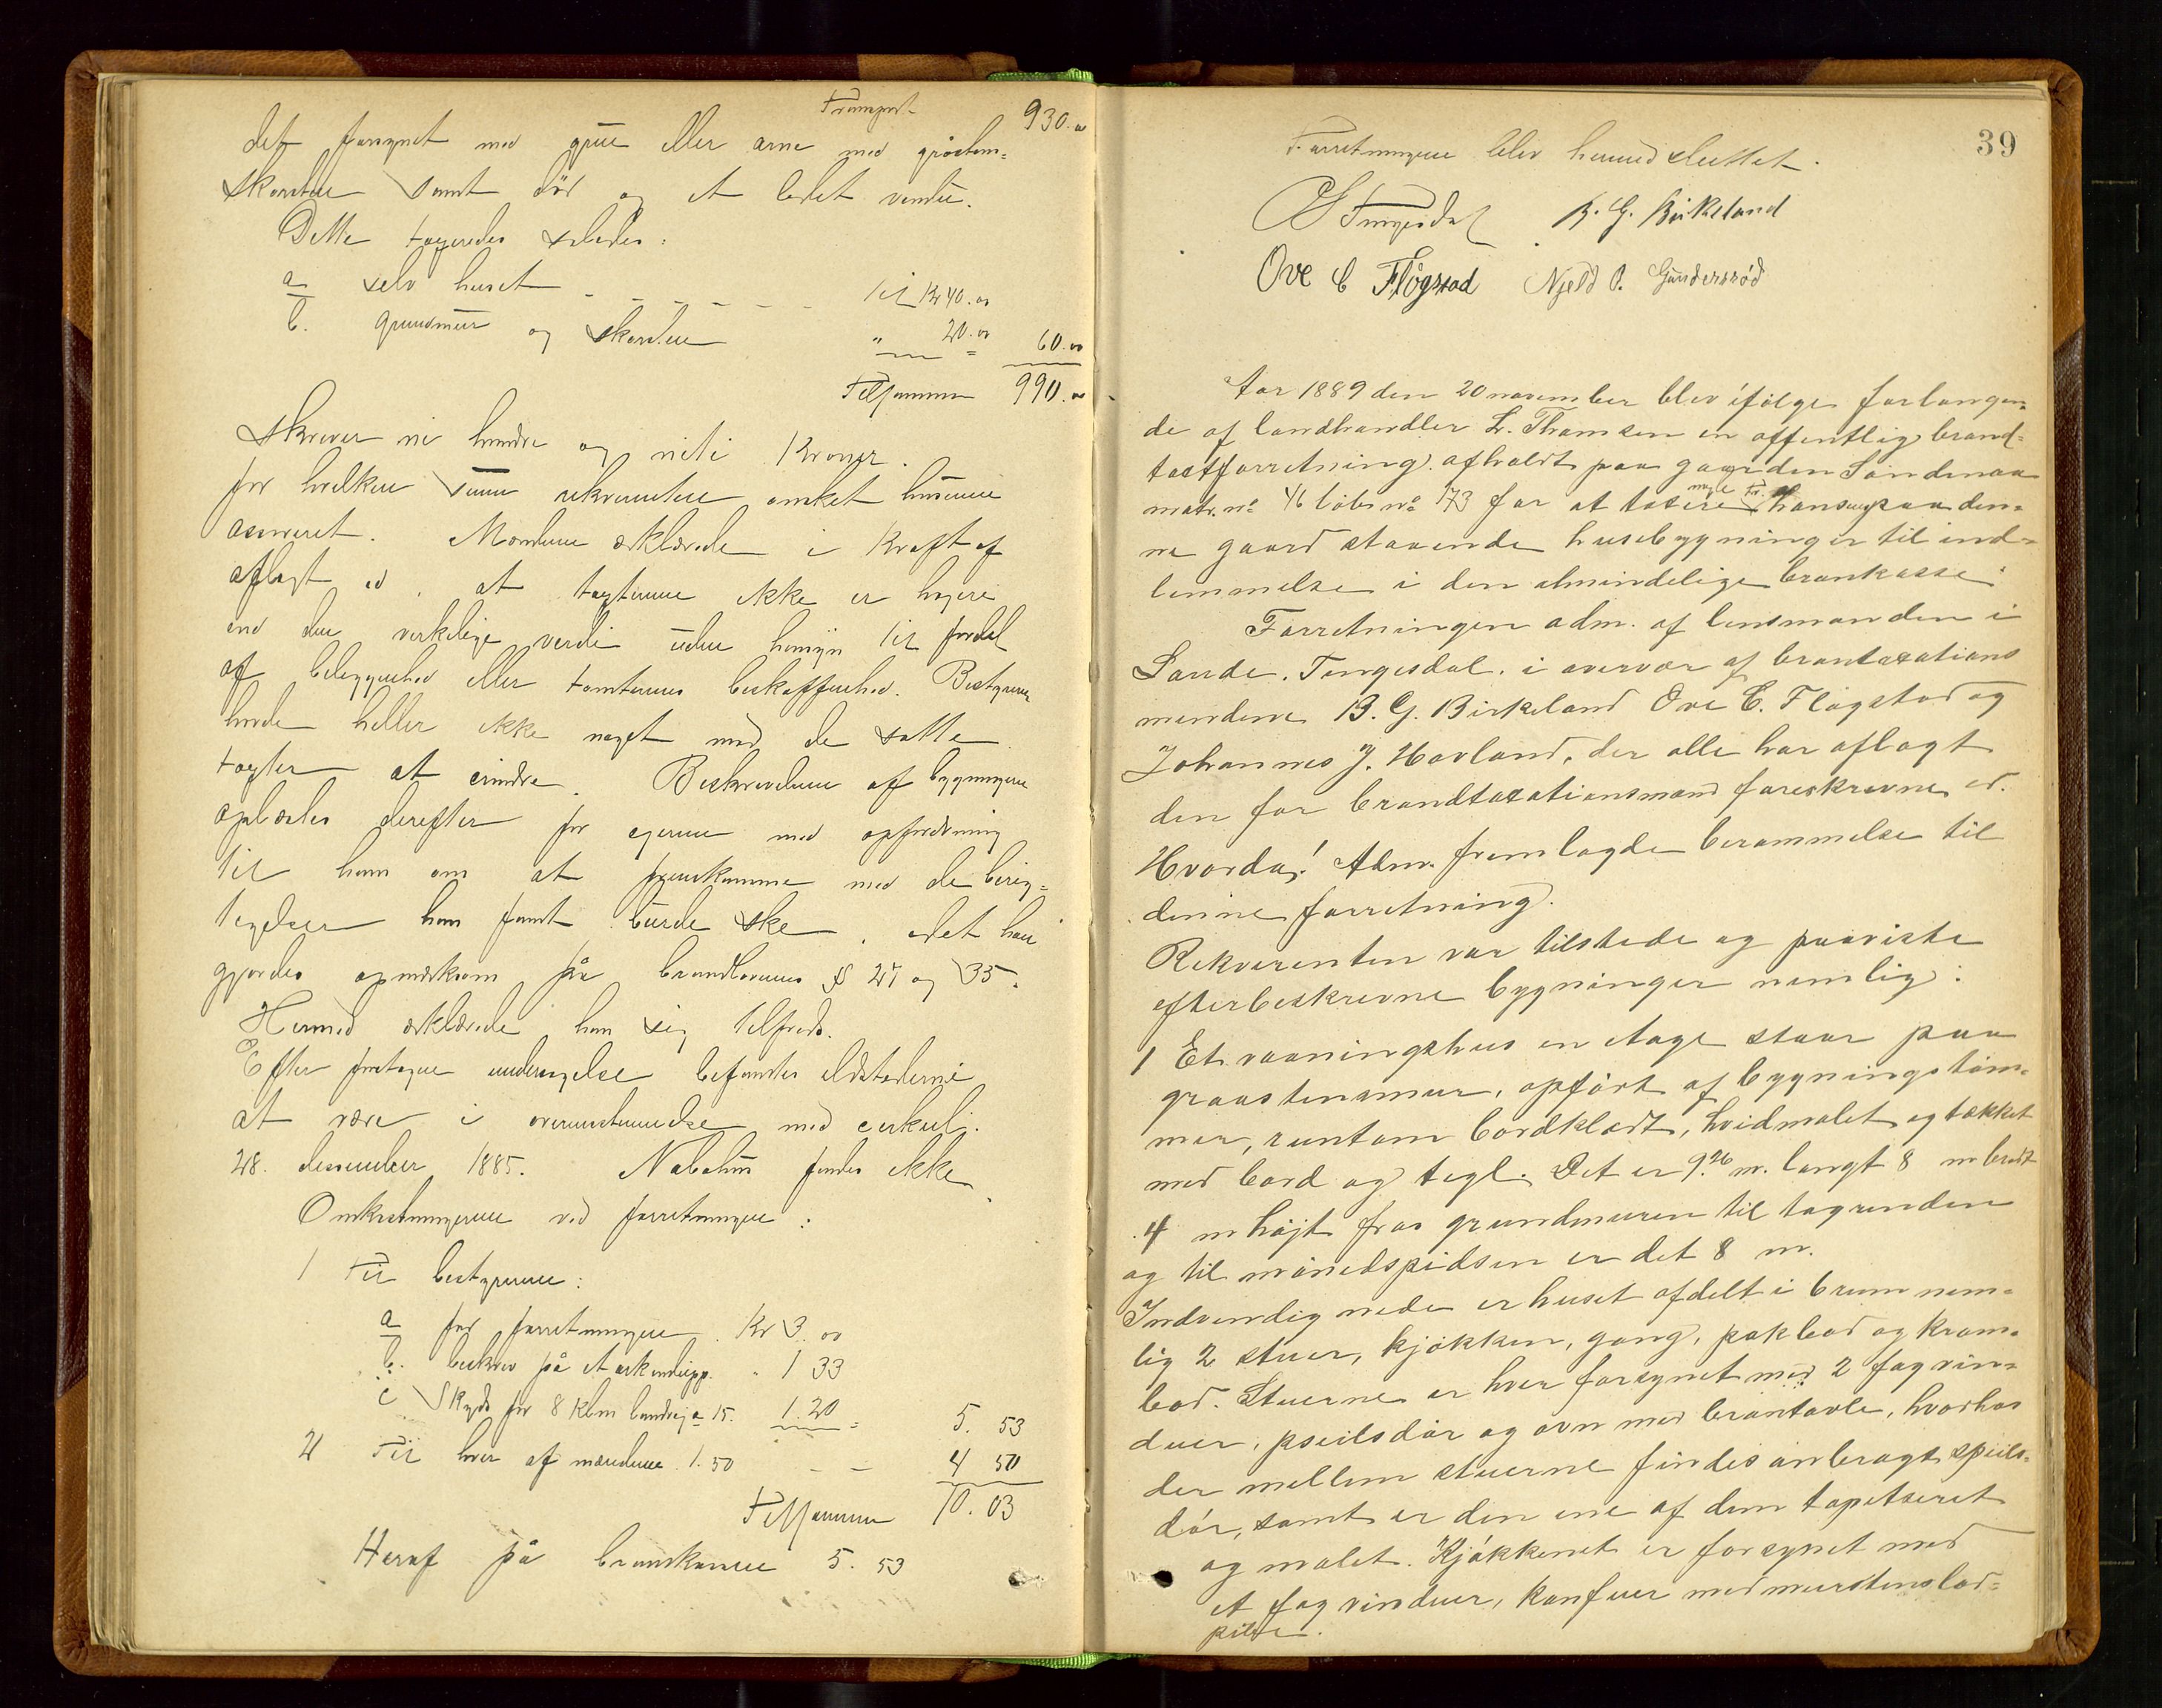 Transport 930.00
det forsynet med grue eller arne med gråstens=
skorsten samt dør og et lidet vindu.
Dette taxeredes således:
a selv huset - - - - - - til Kr 40.00
b. grundmur og skorsten " 20.00 = 60.00
Tilsammen 990.00
Skriver ni hundre og niti Kroner.
for hvilken sum rekvirenten ønsket husene
assureret. Mændene erklærede i kraft af
aflagt ed, at taxterne ikke er høyere
end den verkelige verdi uden hensyn til fordel
af beliggenhed eller tomtenes beskaffenhed. Bestyreren
havde heller ikke noget mod de satte
taxter at erindre. Beskrivelsen af bygningerne
oplæstes derefter for eieren med opfordring
til ham om at fremkomme med de berig=
tigelser han fandt burde ske, idet han
gjordes opmærksom på brandlovens § 27 og 35.
Hermed erklærede han sig tilfreds.
Efter foretagen undersøgelse befandtes ildstederne
at være i overensstemmelse med cirkulj.
28. desember 1885. Nabohus findes ikke.
Omkostningerne ved forretningen:
1 Til bestyreren:
a for forretningen Kr 3.00
b. beskrev på et ark endupp. " 1 33
c Skyds for 8 Kbm landvej a 15. 1.20 = 5. 53
2 Til hver af mændene 1.50 - - 4 50
Tilsammen 10.03
Heraf på brandkassen 5. 53
39
Forretningen blev hermed sluttet.
Tengesdal B. G. Birkeland
Ove C Flògstad Njeld O. Gunderssød
Aar 1889 den 20 november blev ifølge forlangen=
de af landhandler L. Thomsen en offentlig brand=
taxtforretning afholdt paa gaarden Søndenaa
matr. nº 46 løbe nº 173 for at taxere nogle hans paa den=
ne gaard staaende husebygninger til ind=
lemmelse i den almindelige brankasse.
Forretningen adm. af lensmanden i
Sande, Tengesdal, i overvær af brantaxations
mendene B. G. Birkeland Ove C. Flògstad og
Johannes J. Havland, der alle har aflagt
den for brandtaxationsmænd foreskrevne ed.
Hvorda! Adm. fremlagde berammelse til
denne forretning.
Rekverenten var tilstede og paaviste
efterbeskrevne bygninger nemlig:
1 Et vaaningshus en etage staar paa
graastensmur, opført af bygningstøm=
mer, runtom bordklædt, hvidmalet og tækket
med bord og tegl. Det er 9.26 m. langt 8 m bredt
4 m højt fra grundmuren til tagrenden
og til mønedspidsen er det 8 m.
Indvendig nede er huset afdelt i 6 rum nem=
lig 2 stuer, kjøkken, gang, pakbod og kram=
bod. Stuerne er hver forsynet med 2 fag vin=
duer, pseilsdør og ovn med brantavle, hvorhos
der mellem stuerne findes anbragt speils=
dør, samt er den ene af dem tapetseret
og malet. Kjøkkenet er forsynet med
et fag vinduer, komfuer med murstenslod=
pibe.